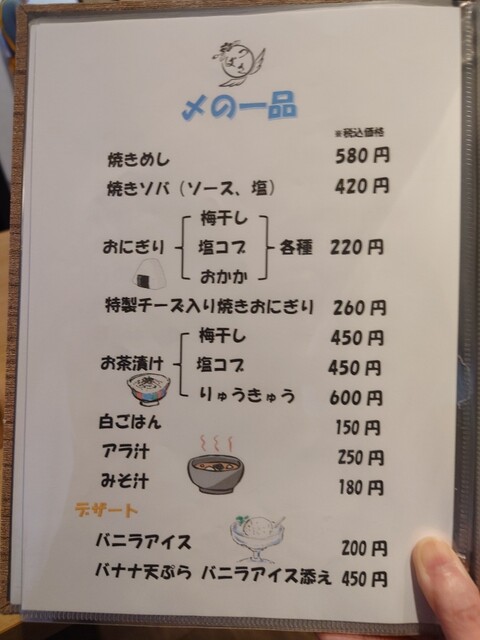 〆の一品
※税込価格
焼きめし 580円
焼きソバ（ソース、塩） 420円
おにぎり 梅干し 塩コブ おかか 各種 220円
特製チーズ入り焼きおにぎり 260円
お茶漬け 梅干し 450円
塩コブ 450円
りゅうきゅう 600円
白ごはん 150円
アラ汁 250円
みそ汁 180円
デザート
バニラアイス 200円
バナナ天ぷら バニラアイス添え 450円